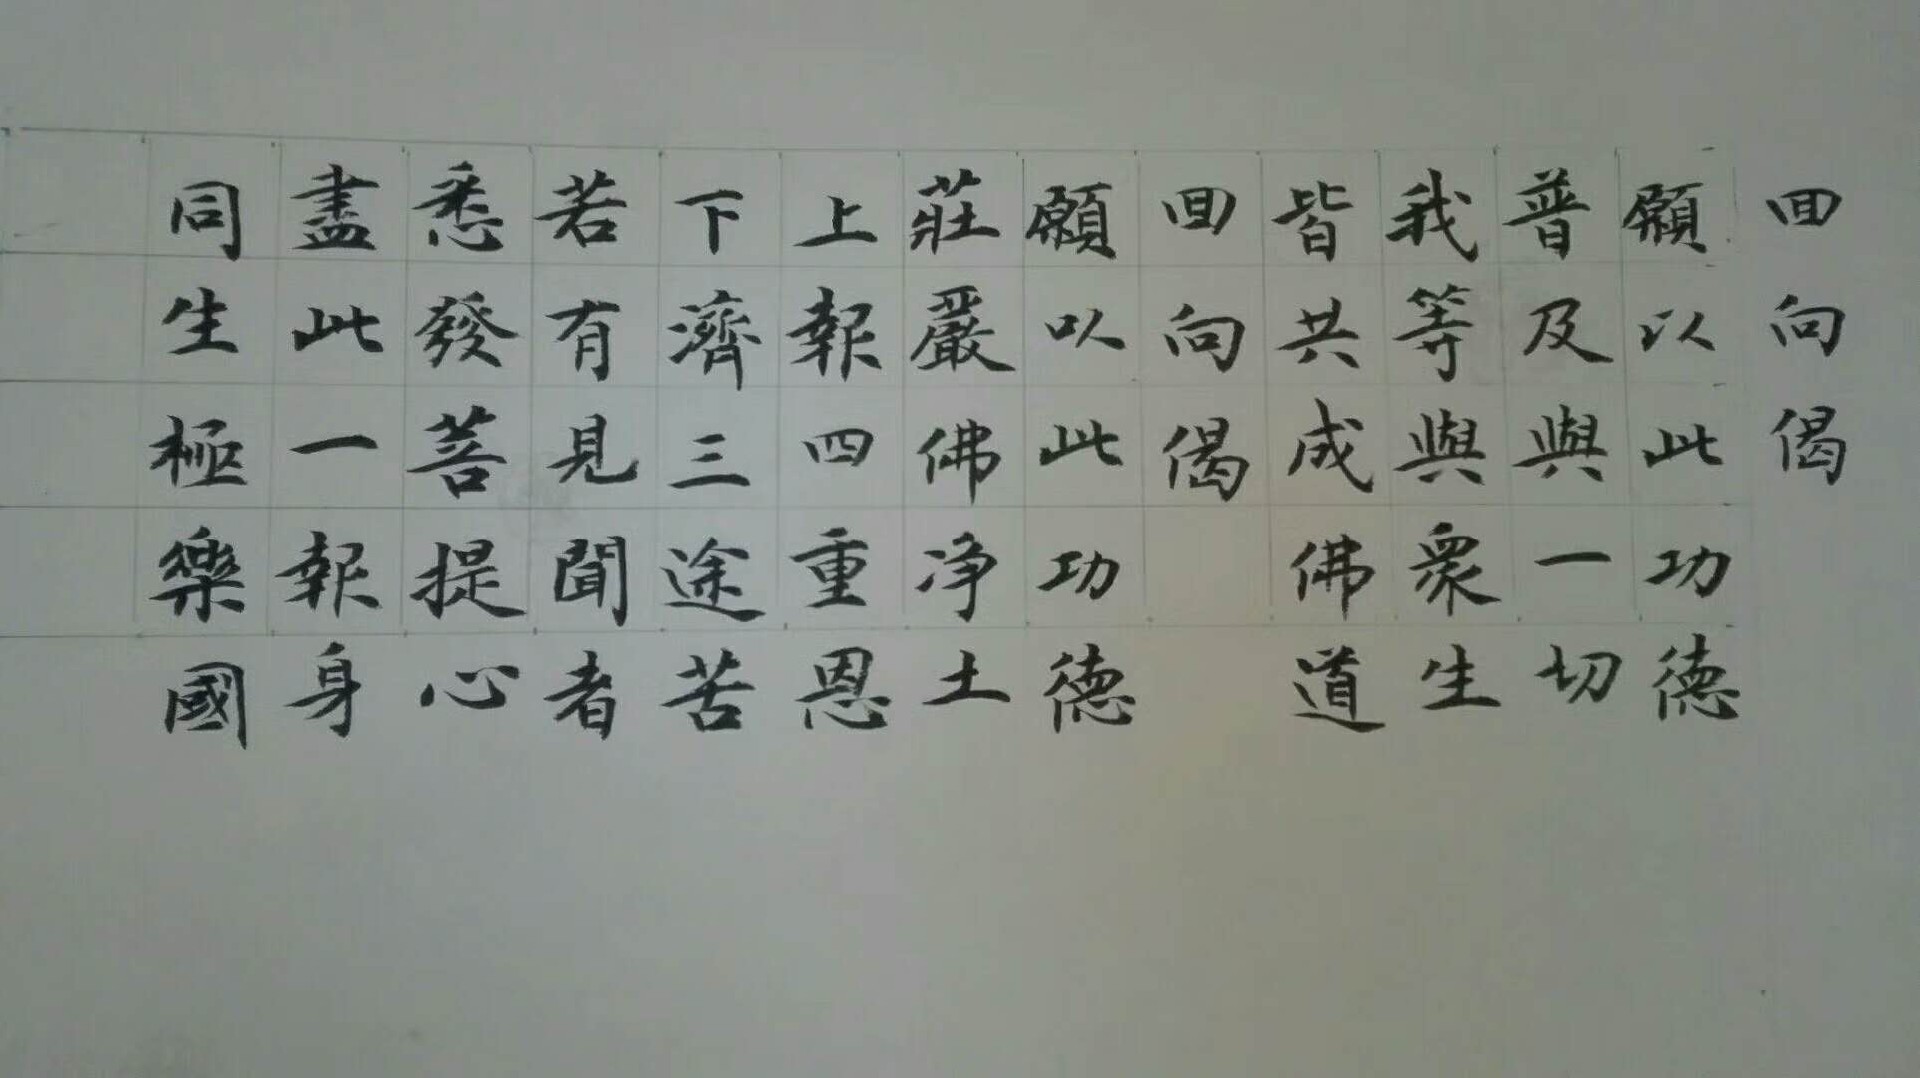 回向偈
願以此功德
普及與一切
我等與眾生
皆共成佛道
回向偈
願以此功德
莊嚴佛净土
上報四重恩
下濟三途苦
若有見聞者
悉發菩提心
盡此一報身
同生極樂國